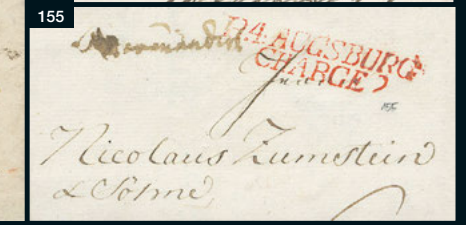 155
Recomandirt
R.4.AUGSBURG
CHARGE
Nicolaus Zumstein
& Söhne